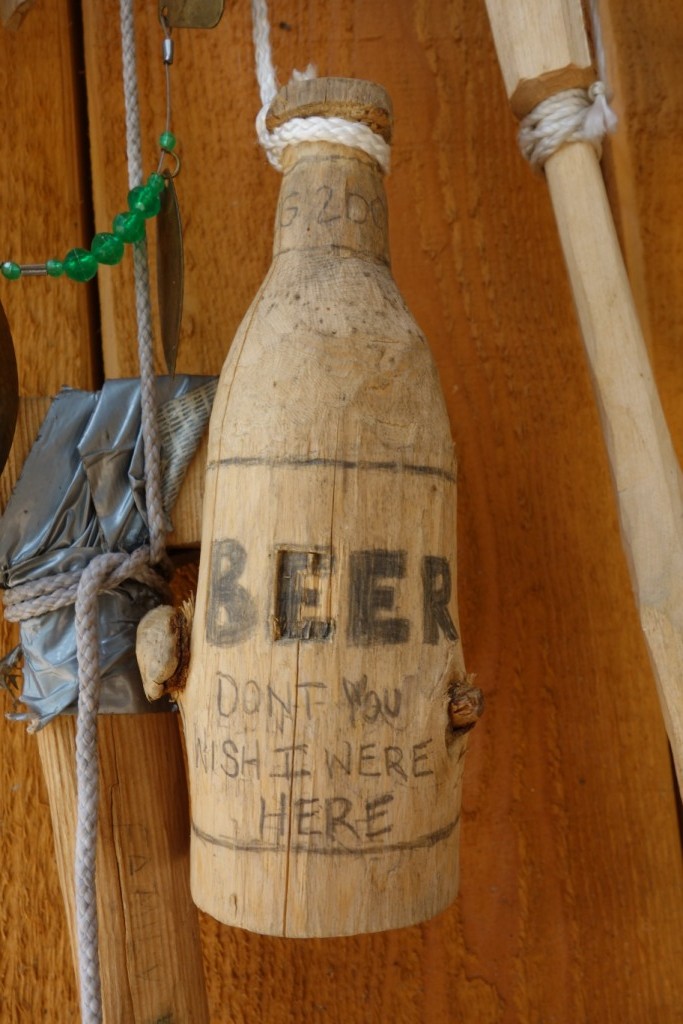 G 200
BEER
DONT YOU
WISH I WERE
HERE
FAMILY